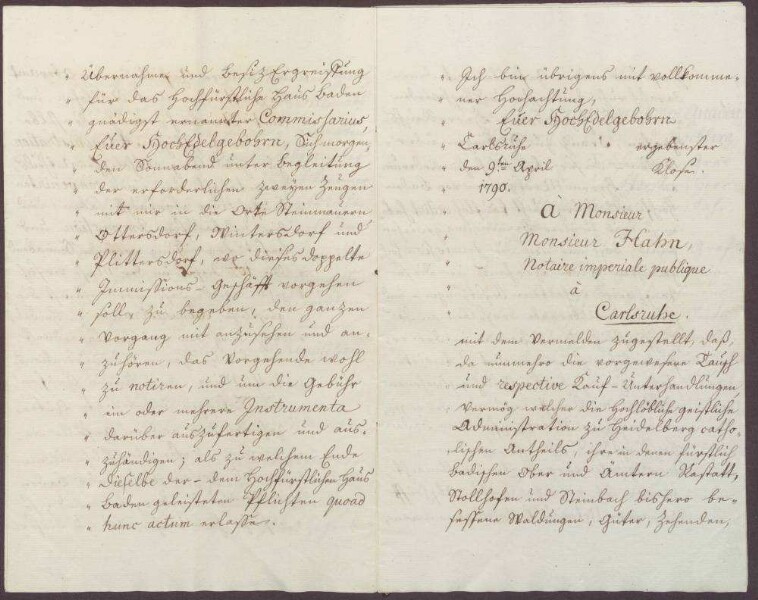 " Übernahme und Besiz Ergreiffung
" für das Hochfürstliche Haus Baden
" gnädigst ernannter Commissarius
" Euer HochEdelgebohrn, Sich morgen,
" den Sonnabend unter Begleitung
" der erforderlichen zweyen Zeugen
" mit mir in die Orte Steinmauern
" Ottersdorf, Wintersdorf und
" Plittersdorf, wo dieses doppelte
" Immissions-Geschäft vorgehen
" soll, zu begeben, den ganzen
" Vorgang mit anzusehen und an-
" zuhören, das Vorgehende wohl
" zu notiren, und um die Gebühr
" ein oder mehrere Instrumenta
" darüber auszufertigen und aus-
" zuhändigen; als zu welchem Ende
" dieselbe der - dem Hochfürstlichen Haus
" Baden geleisteten Pflichten quoad
" hunc actum erlasse.
" Ich bin übrigens mit vollkomme-
" ner Hochachtung,
" Euer HochEdelgebohrn
" Carlsruhe " ergebenster
" den 9ten April Klose.
" 1790.
" à Monsieur
" Monsieur Hahn,
" Notaire imperiale publique
" à
" Carlsruhe.
mit dem Vermelden zugestellt, daß,
da nunmehro die vorgewesene Tausch
und respective Kauf-Unterhandlungen
vermög welcher die Hochlöbliche geistliche
Administration zu Heidelberg catho-
lischen Antheils, ihre in denen fürstlich
Badischen Ober und Ämtern Rastatt,
Stollhofen und Steinbach bishero be-
sessene Waldungen, Güter, Zehenden,